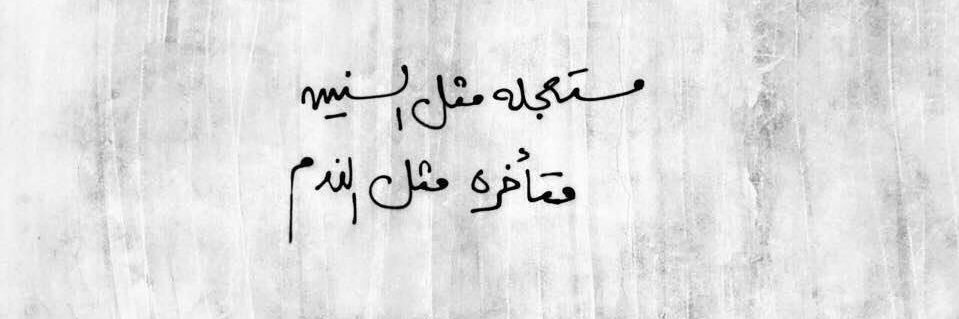 مستعجله مثل السنين
متأخره مثل الندم